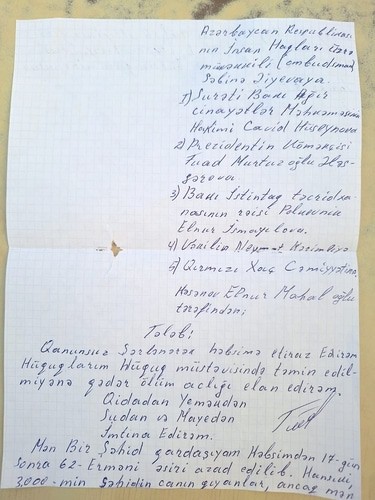 Azərbaycan Respublikası
nın İnsan Haqları üzrə
müvəkkili (ombudsman)
Səbinə Əliyevaya.
1) Surəti Bakı Ağır
cinayətlər Məhkəməsinin
Hakimi Cavid Hüseynova
2) Prezidentin Köməkçisi
Fuad Murtuz oğlu Ələs-
gərova.
3) Bakı İstintaq təcridxa-
nasının rəisi Polkovnik
Elnur İsmayılova.
4) Vəkilim
5) Qırmızı Xaç Cəmiyyətinə.
Həsənov Elnur Mahal oğlu
tərəfindən;
Tələb;
Qanunsuz Şərlənərək həbsimə etiraz Edirəm
Hüquqlarım Hüquq müstəvisində təmin edil-
miyənə qədər ölüm aclığı elan edirəm.
Qidadan Yeməkdən
Sudan və Mayedən
İmtina Edirəm.
Mən Bir Şəhid qardaşıyam Həbsimdən 17-gün
sonra 62-Erməni əsiri azad edilib. Hansı ki,
3,000-min Şəhidin canın qıyanlar, ancaq mən